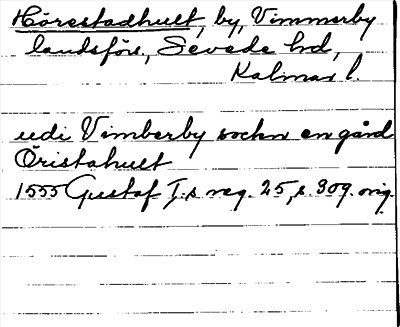 Hörestadhult, by, Vimmerby
landsförs., Sevede hd,
Kalmar l.
udi Vimberby sochn en gård
Öristahult
1555 Gustaf I:s reg. 25, s. 309. orig.